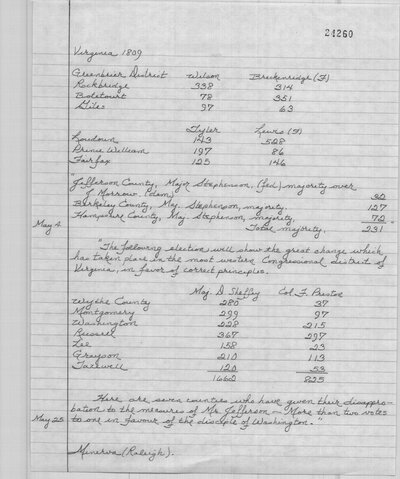 24260
Virginia 1809
Greenbrier District Wilson Breckenridge (F)
Rockbridge 338 314
Botetourt 78 351
Giles 97 63
Tyler Lewis (F)
Loudoun 143 528
Prince William 197 86
Fairfax 125 146
"Jefferson County, Major Stephenson, (fed) majority over
J. Morrow, (dem) 32
Berkeley County, Maj. Stephenson, majority, 127
Hampshire County, Maj. Stephenson, majority, 72"
May 4 Total majority, 231
"The following election will show the great change which
has taken place in the most western Congressional district of
Virginia, in favor of correct principles.
Maj. D Sheffey Col. F. Preston
Wythe County 280 37
Montgomery 299 97
Washington 228 215
Russell 367 297
Lee 158 23
Grayson 210 113
Tazewell 120 53
1662 835
Here are seven counties who have given their disappro-
bation to the measures of Mr. Jefferson - More than two votes
May 25 to one in favour of the disciple of Washington."
Minerva (Raleigh).